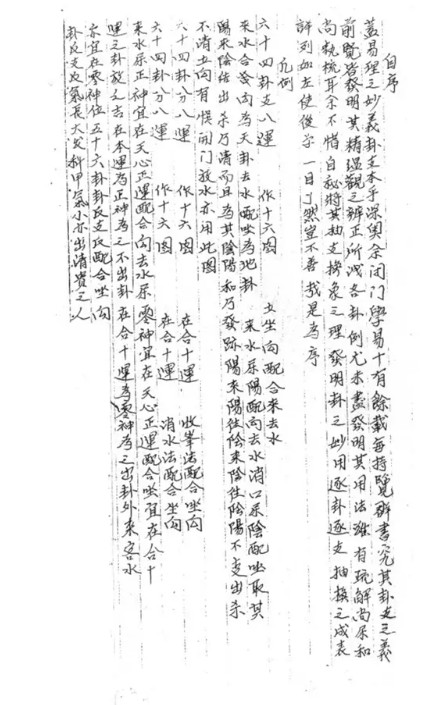 自序
蓋易理之妙義卦爻本乎深奧余閉門學易十有餘載每持覽群書究其卦爻之義
前覽皆發明其精蘊觀之辨正所從各卦例尤未盡發明其用法雖有疏解尚屬和
尚執梳耳余不惜自秘將其抽爻換象之理發明卦之妙用逐卦逐爻抽換之成表
詳列如左使後學一目了然豈不善哉是為序
凡例
六十四卦爻八運 作十六圖 立坐向配合來去水
來水合發向為天卦去水配坐為地卦 來水屬陽配向去水消口屬陰配坐取其
陽來陰結出乃清而且為其陰陽和乃發跡陽來陽住陰來陰住陰陽不交出
不清立向有悮開門放水亦用此圖
六十四卦分八運 作十六圖 在合十運 收峯法配合坐向
六十四卦分八運 作十六圖 在合十運 消水法配合坐向
來水屬正神宜在天心正運配合向去水屬零神宜在天心正運配合坐宜在合十
運之卦救之吉在本運為正神為之不出卦在合十運為零神為之出卦外來客水
亦宜在零神位五十六卦卦反爻反配合坐向
卦反爻反氣長大發科甲氣小亦出清貴之人